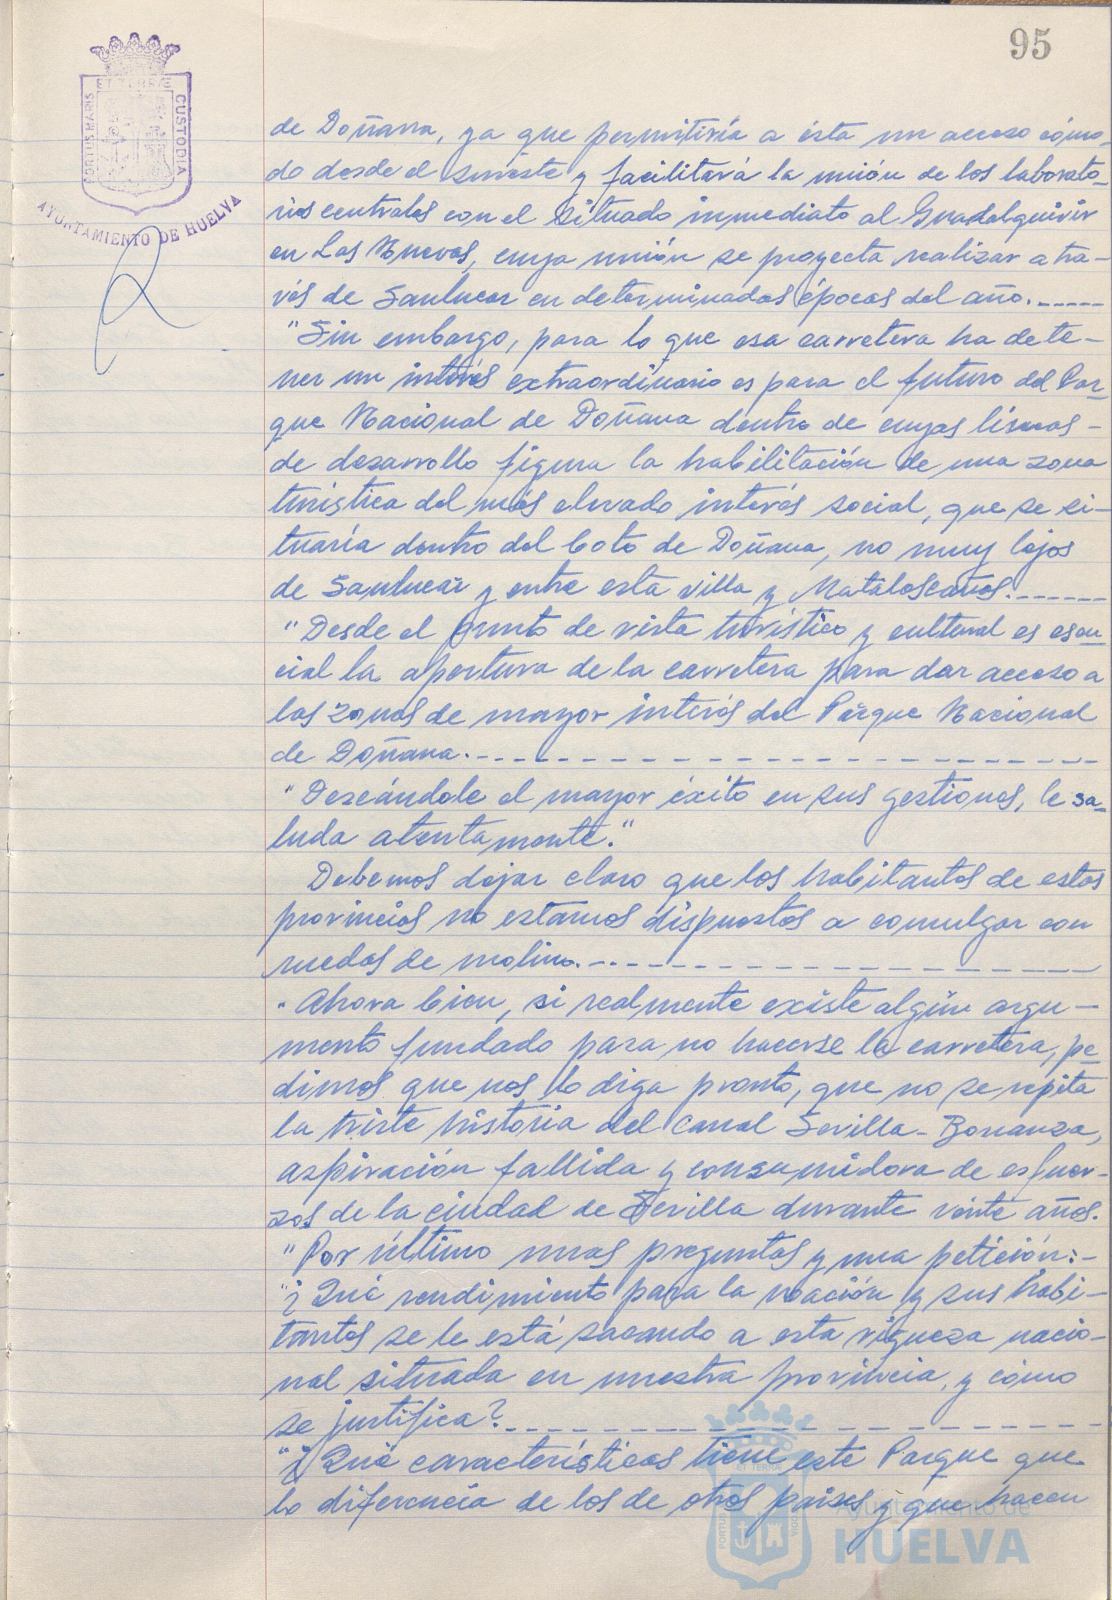 95
ET TERRE
PORTUS MARIS
CUSTODIA
AYUNTAMIENTO DE HUELVA
de Doñana, ya que permitiría a ésta un acceso cómo-
do desde el sureste y facilitará la unión de los laborato-
rios centrales con el situado inmediato al Guadalquivir
en Las Nuevas, cuya unión se proyecta realizar a tra-
vés de Sanlucar en determinadas épocas del año.
"Sin embargo, para lo que esa carretera ha de te-
ner un interés extraordinario es para el futuro del Par-
que Nacional de Doñana dentro de cuyas líneas
de desarrollo figura la habilitación de una zona
turística del más elevado interés social, que se si-
tuaría dentro del Coto de Doñana, no muy lejos
de Sanlucar y entre esta villa y Matalascañas.
"Desde el punto de vista turístico y cultural es esen-
cial la apertura de la carretera para dar acceso a
las zonas de mayor interés del Parque Nacional
de Doñana.
"Deseándole el mayor éxito en sus gestiones, le sa-
luda atentamente."
Debemos dejar claro que los habitantes de estas
provincias no estamos dispuestos a comulgar con
ruedas de molino.
"Ahora bien, si realmente existe algún argu-
mento fundado para no hacerse la carretera, pe-
dimos que nos lo diga pronto, que no se repita
la triste historia del canal Sevilla-Bonanza,
aspiración fallida y consumidora de esfuer-
zos de la ciudad de Sevilla durante veinte años.
"Por último unas preguntas y una petición:-
"¿Qué rendimiento para la nación y sus habi-
tantes se le está sacando a esta riqueza nacio-
nal situada en nuestra provincia, y cómo
se justifica?
"¿Qué características tiene este Parque que
lo diferencia de los de otros países y que hacen
Ayuntamiento de
HUELVA